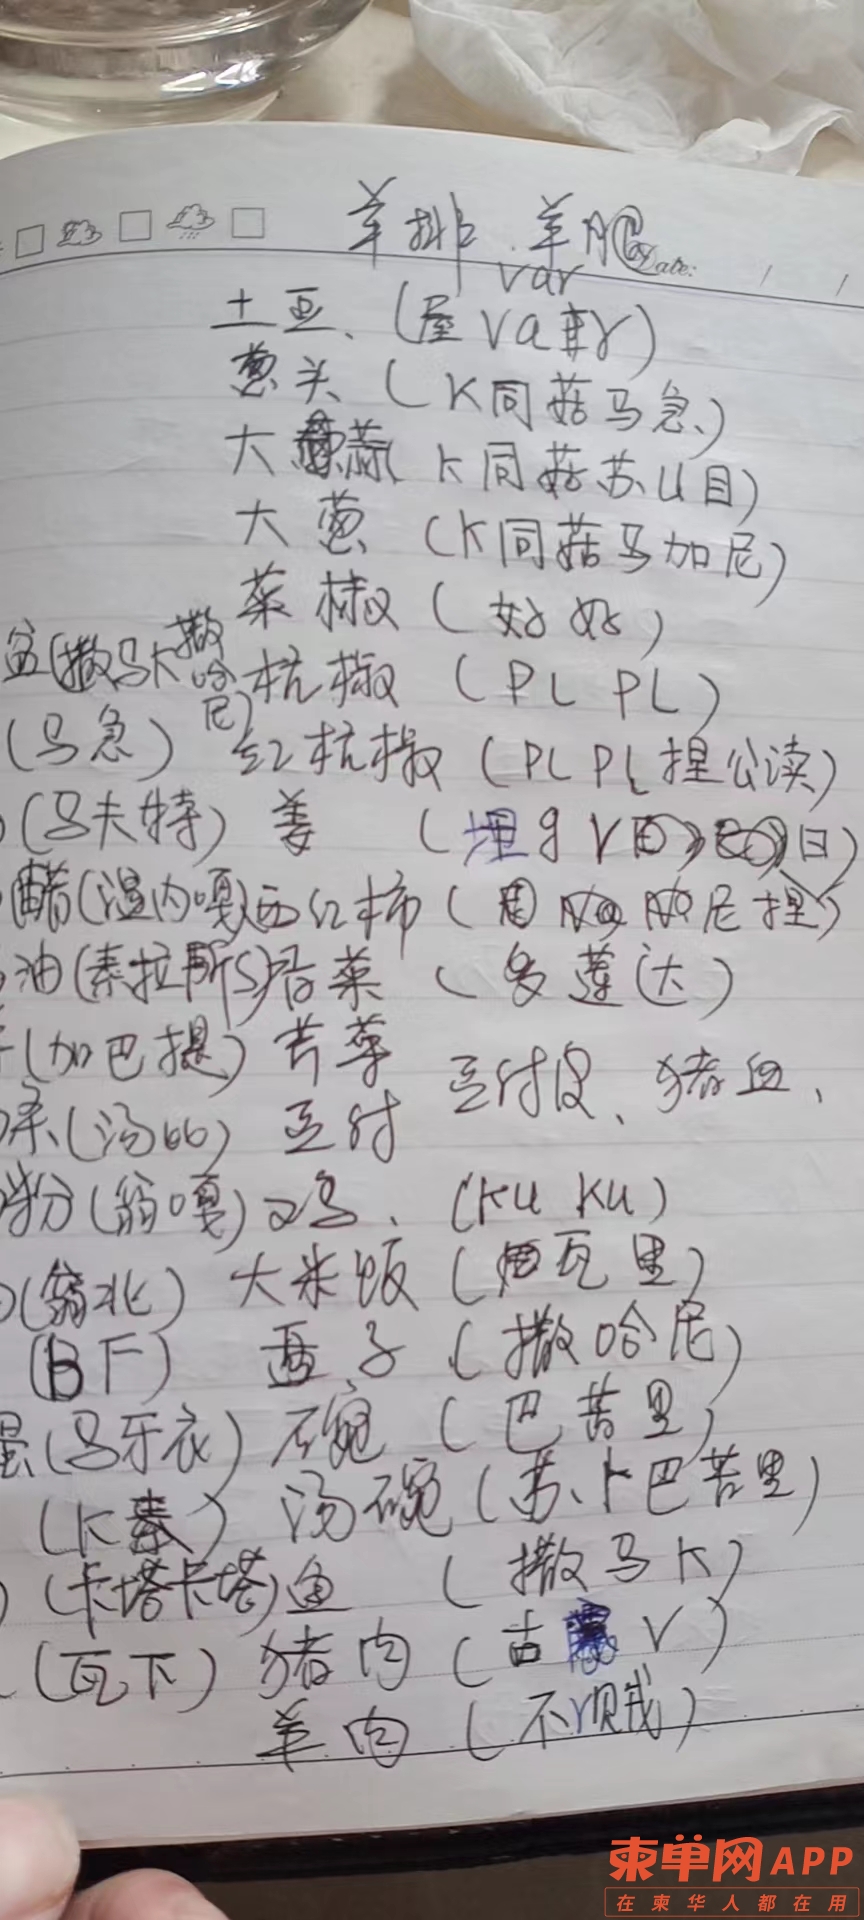 羊排、羊腿
Date:
var
土豆、(屋va r)
葱头(K同菇马急、)
大蒜(K同菇苏u目)
大葱(K同菇马加尼)
菜椒(好好)
盆(撒马K撒哈尼)杭椒(PL PL)
(马急)红杭椒(PL PL捏公读)
(马夫特)姜(埋g V 日)
醋(温内嘎)西红柿(尼捏)
油(素拉斯S)香菜(多莲达)
(加巴提)芹菜 豆付皮、猪血、
(汤66)豆付
粉(翁嘎)鸡、(KU KU)
(翁北)大米饭(瓦里)
(BF)盘子(撒哈尼)
蛋(马牙衣)碗(巴苦里)
(K素)汤碗(苏、卜巴苦里)
(卡塔卡塔)鱼(撒马K)
(瓦下)猪肉(古 V)
羊肉(不 贼)
柬单网APP
在柬华人都在用